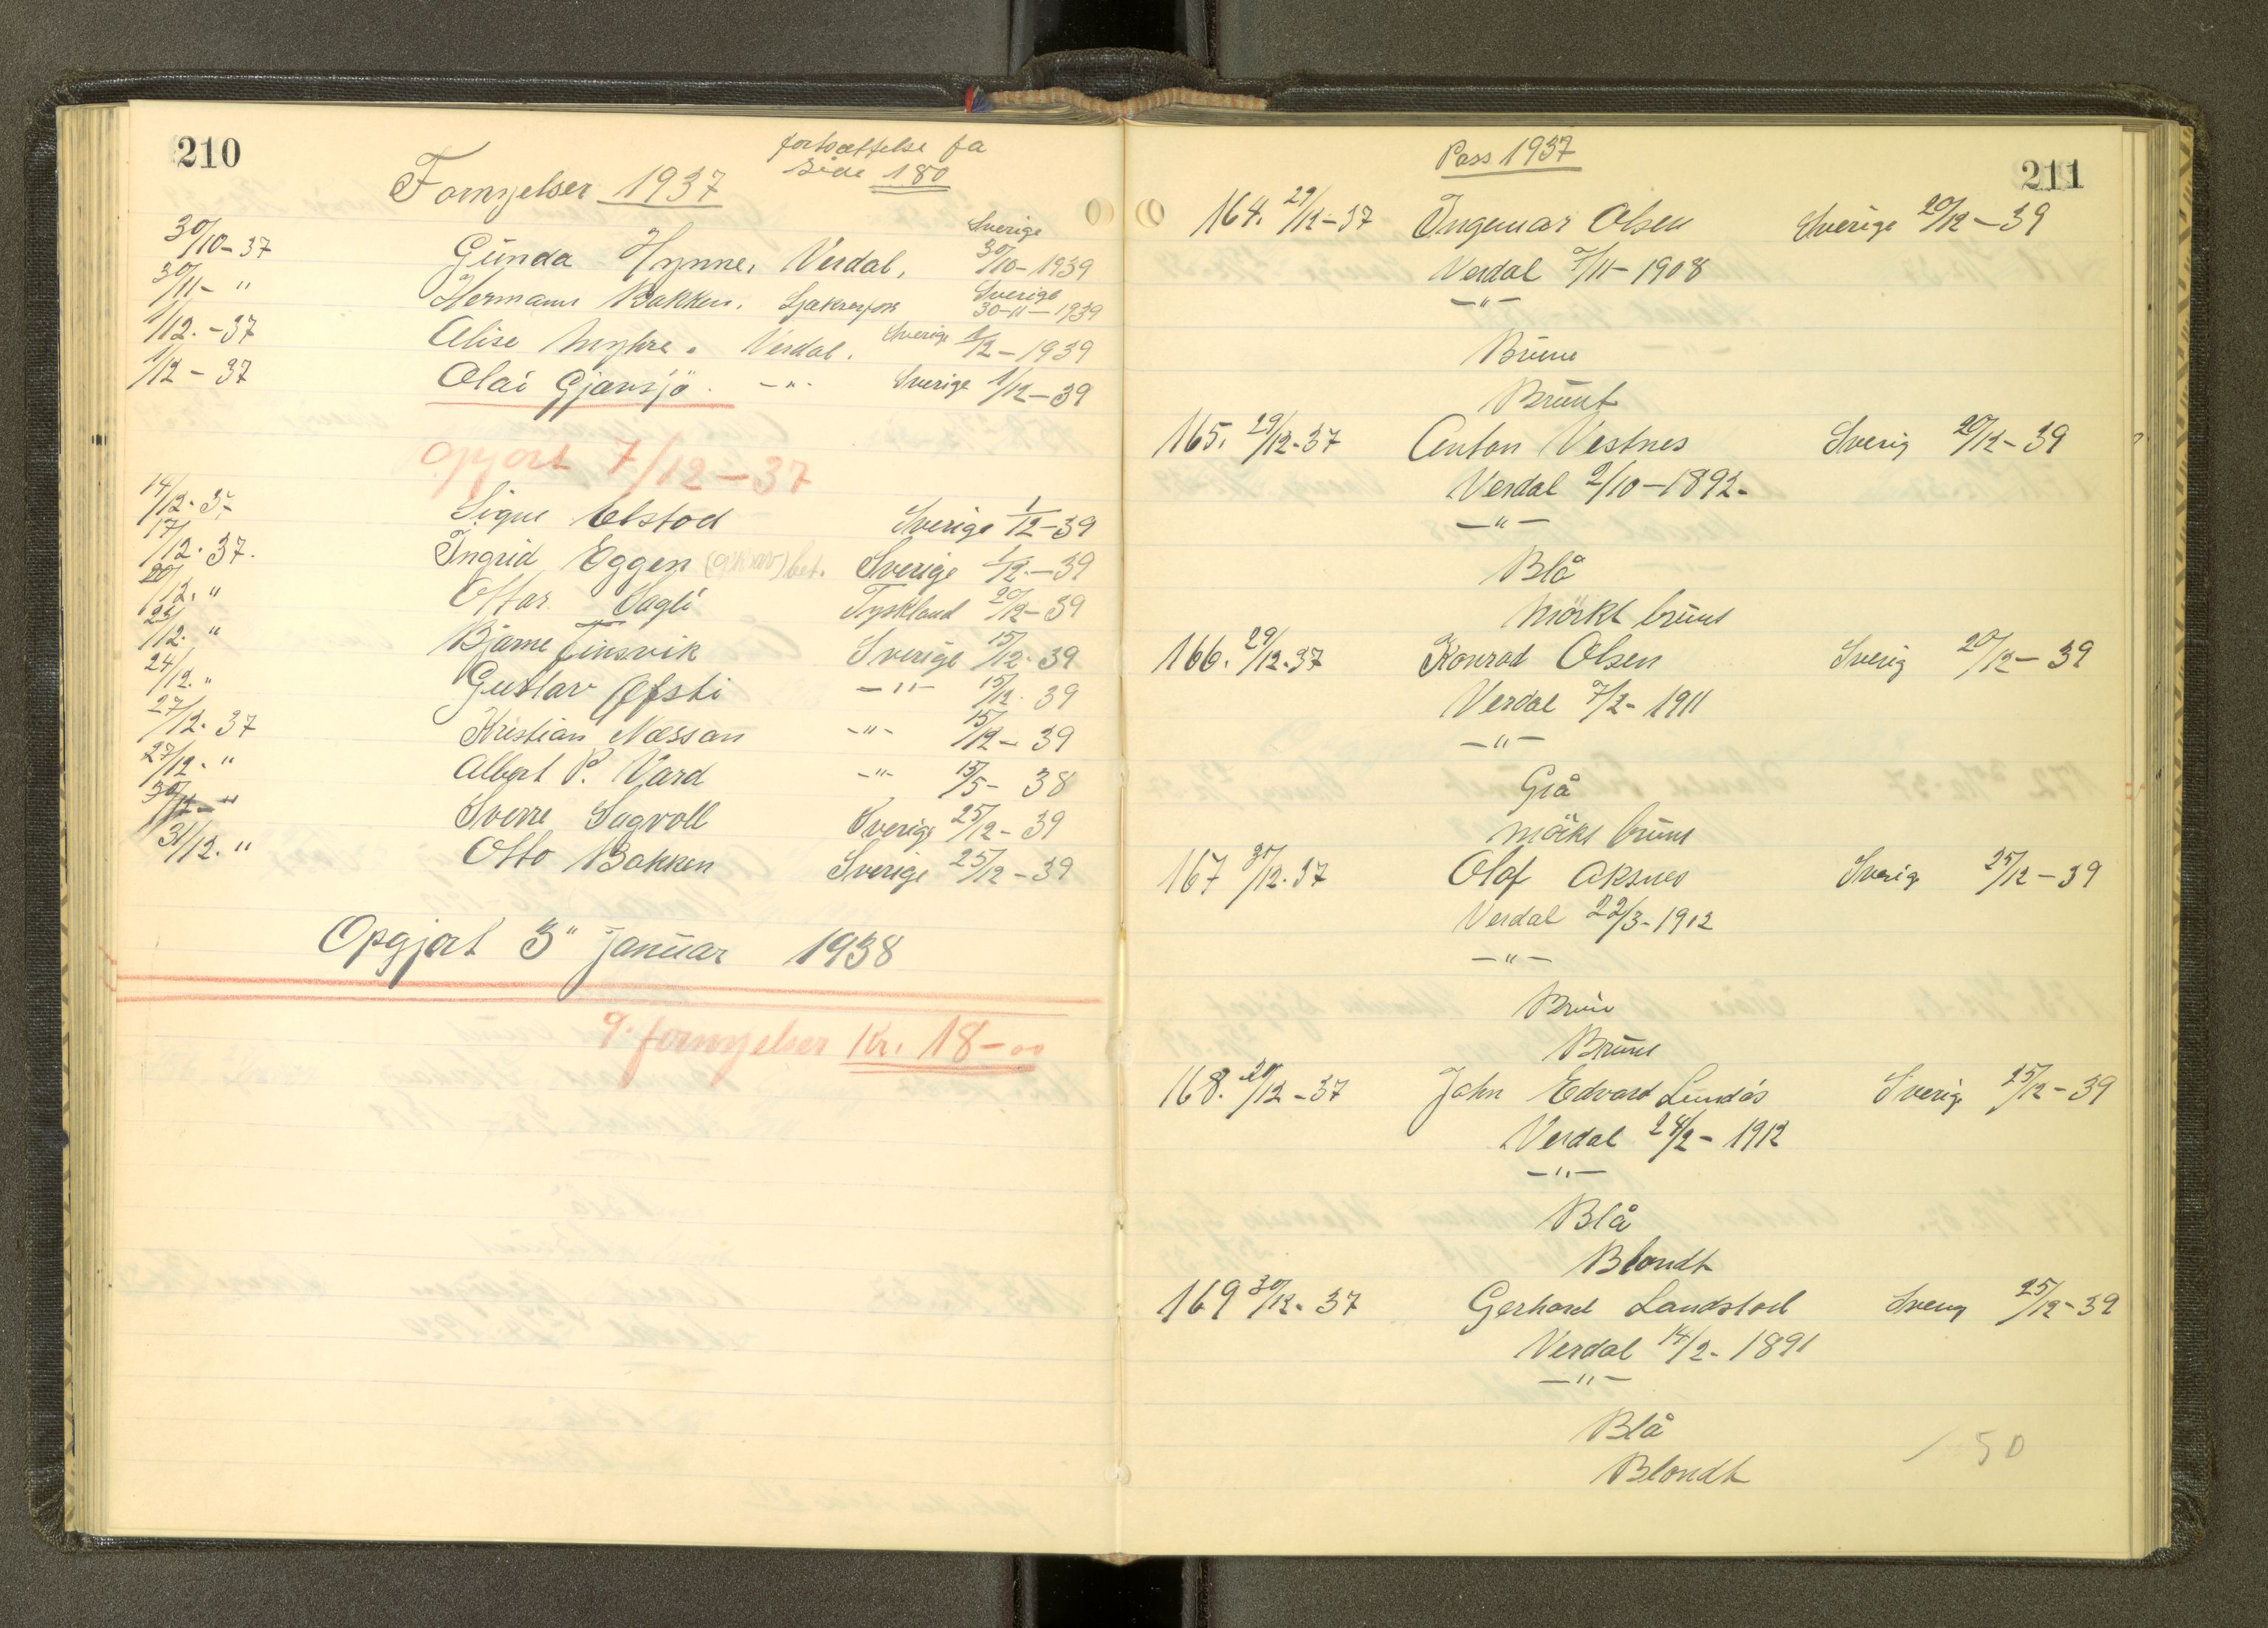 210
Fornyelser 1937 fortsættelse fa side 180
30/10-37 Gunda Hynne, Verdal, Sverige 30/10-1939
30/11- " Hermann Bakken, Sverige 30-11-1939
1/12.-37 Alise Myhre. Verdal. Sverige 1/12-1939
1/12-37 Olai Gjersjö. -"- Sverige 1/12-39
Opgjort 7/12-37
14/12.37 Signe Elstad Sverige 1/12-39
17/12.37. Ingrid Eggen bet. Sverige 1/12.-39
20/12. " Ottar Sagli Tyskland 20/12-39
/12. " Bjarne Tinsvik Sverige 15/12.39
24/12. " Gustav Efsti -"- 15/12.39
27/12.37 Kristian Næssan -"- 15/12-39
27/12. " Albert P. Vard -"- 15/5-38
30/12-" Sverre Sagvoll Sverige 25/12-39
31/12. " Otto Bakken Sverige 25/12-39
Opgjort 3" januar 1938
9. fornyelser Kr. 18-00
Pass 1937
211
164. 29/12-37 Ingemar Olsen Sverige 20/12-39
Verdal 7/11-1908
-"-
Brune
Brunt
165. 29/12-37 Anton Vestnes Sverig 20/12-39
Verdal 2/10-1892-
-"-
Blå
Mörkt brunt
166. 29/12.37 Konrad Olsen Sverig 20/12-39
Verdal 7/2-1911
-"-
Grå
Mörkt brunt
167 30/12.37 Olaf Aksnes Sverig 25/12-39
Verdal 22/3-1912
-"-
Brun
Brunt
168. 30/12-37 John Edvard Lundås Sverig 25/12-39
Verdal 24/2-1912
-"-
Blå
Blondt
169 30/12.37 Gerhard Landstad Sverig 25/12-39
Verdal 14/2-1891
-"-
Blå
Blondt
50